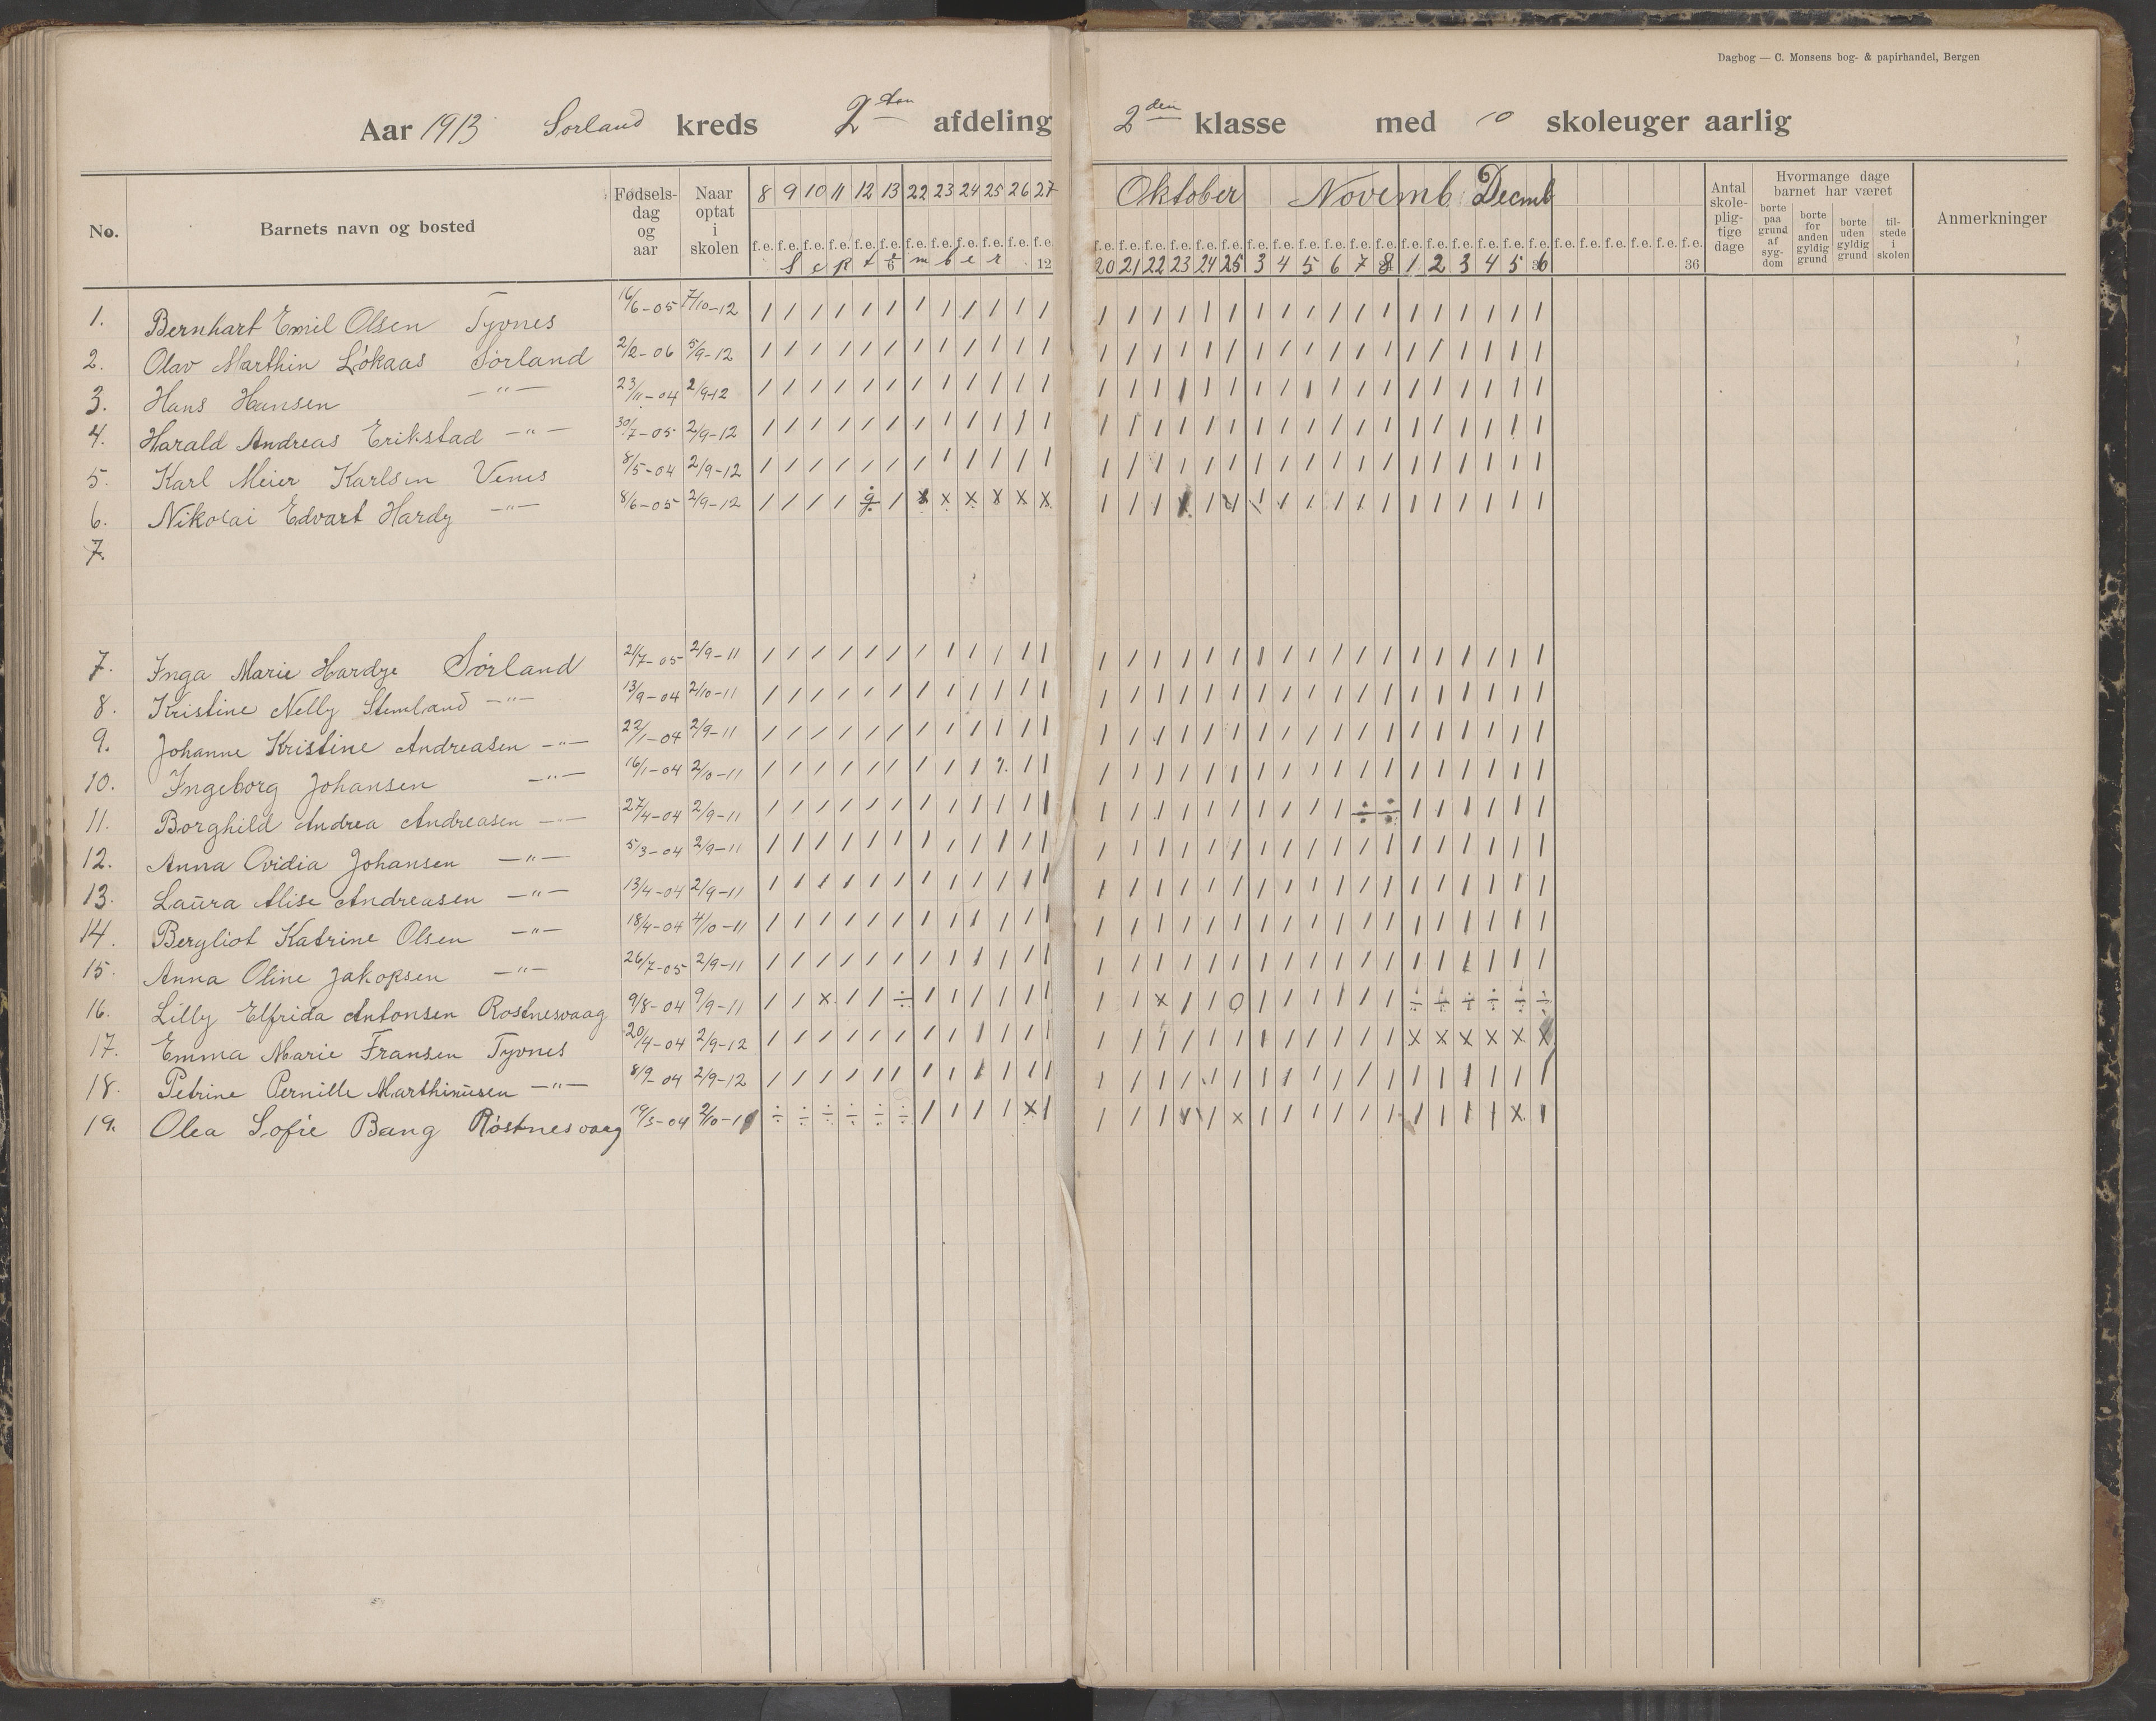 Dagbog — C. Monsens bog- & papirhandel, Bergen
Aar 1913 Sørland kreds 2den afdeling 2den klasse med 10 skoleuger aarlig
No. Barnets navn og bosted Fødselsdag og aar Naar optat i skolen 8 9 10 11 12 13 22 23 24 25 26 27 Oktober Novemb. Decmb Antal skolepligtige dage Hvormange dage barnet har været Anmerkninger
borte paa grund af sygdom borte for anden gyldig grund borte uden gyldig grund tilstede i skolen
f.e. f.e. f.e. f.e. f.e. f.e. f.e. f.e. f.e. f.e. f.e. f.e. f.e. f.e. f.e. f.e. f.e. f.e. f.e. f.e. f.e. f.e. f.e. f.e. f.e. f.e. f.e. f.e. f.e. f.e. f.e. f.e. f.e. f.e. f.e. f.e.
September 6 12 20 21 22 23 24 25 3 4 5 6 7 8 1 2 3 4 5 6 36
1. Bernhart Emil Olsen Tyvnes 16/6-05 7/10-12 / / / / / / / / / / / / / / / / / / / / / / / / / / / / / /
2. Olav Marthin Løkaas Sørland 2/2-06 5/9-12 / / / / / / / / / / / / / / / / / / / / / / / / / / / / / /
3. Hans Hansen —"— 23/11-04 2/9-12 / / / / / / / / / / / / / / / / / / / / / / / / / / / / / /
4. Harald Andreas Erikstad —"— 30/7-05 2/9-12 / / / / / / / / / / / / / / / / / / / / / / / / / / / / / /
5. Karl Meier Karlsen Venes 8/5-04 2/9-12 / / / / / / / / / / / / / / / / / / / / / / / / / / / / / /
6. Nikolai Edvart Hardy —"— 8/6-05 2/9-12 / / / / ÷ / x x x x x x / / / / / / / / / / / / / / / / /
7.
7. Inga Marie Hardye Sørland 2/7-05 2/9-11 / / / / / / / / / / / / / / / / / / / / / / / / / / / / / /
8. Kristine Nelly Stemland —"— 13/9-04 2/10-11 / / / / / / / / / / / / / / / / / / / / / / / / / / / / / /
9. Johanne Kristine Andreasen —"— 22/1-04 2/9-11 / / / / / / / / / / / / / / / / / / / / / / / / / / / / / /
10. Ingeborg Johansen —"— 16/1-04 2/10-11 / / / / / / / / / / / / / / / / / / / / / / / / / / / / /
11. Borghild Andrea Andreasen —"— 27/4-04 2/9-11 / / / / / / / / / / / / / / / / / / / / / / ÷ ÷ / / / / / /
12. Anna Ovidia Johansen —"— 5/3-04 2/9-11 / / / / / / / / / / / / / / / / / / / / / / / / / / / / / /
13. Laura Alise Andreasen —"— 13/4-04 2/9-11 / / / / / / / / / / / / / / / / / / / / / / / / / / / / / /
14. Bergliot Katrine Olsen —"— 18/4-04 4/10-11 / / / / / / / / / / / / / / / / / / / / / / / / / / / / / /
15. Anna Oline Jakopsen —"— 26/7-05 2/9-11 / / / / / / / / / / / / / / / / / / / / / / / / / / / / / /
16. Lilly Elfrida Antonsen Rostnesvaag 9/8-04 9/9-11 / / x / / ÷ / / / / / / / / x / / 0 / / / / / / ÷ ÷ ÷ ÷ ÷ ÷
17. Emma Marie Fransen Tyvnes 20/4-04 2/9-12 / / / / / / / / / / / / / / / / / / / / / / / / x x x x x x
18. Petrine Pernille Marthinusen —"— 8/9-04 2/9-12 / / / / / / / / / / / / / / / / / / / / / / / / / / / / / /
19. Olea Sofie Bang Røstnesvaag 19/3-04 2/10-11 ÷ ÷ ÷ ÷ ÷ ÷ / / / / x / / / / / / x / / / / / / / / / / x /